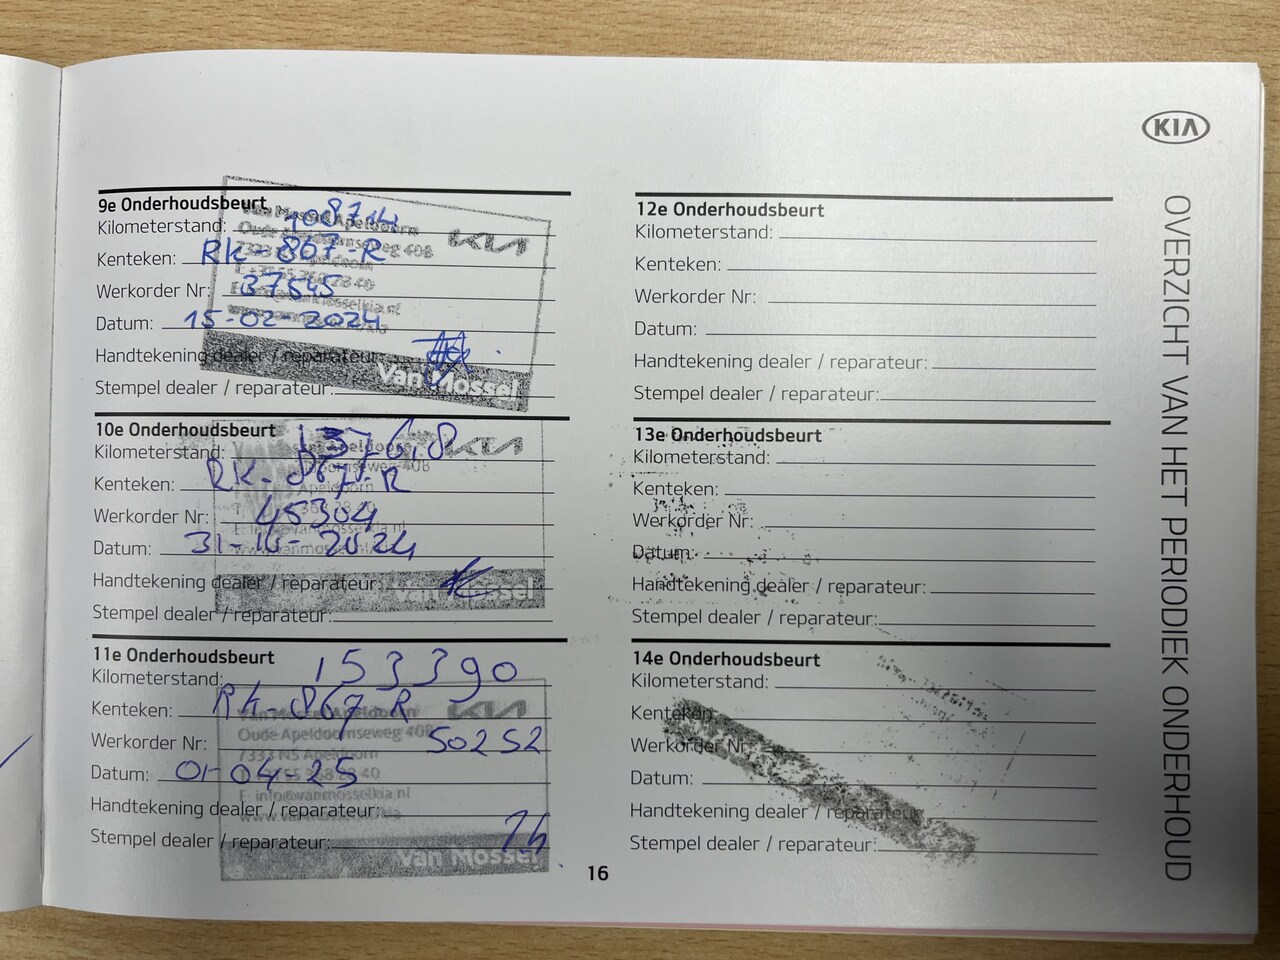 KIA
OVERZICHT VAN HET PERIODIEK ONDERHOUD
9e Onderhoudsbeurt
Kilometerstand:
Kenteken: RK-867-R
Werkorder Nr: 37545
Datum: 15-02-2024
Handtekening dealer / reparateur:
Stempel dealer / reparateur:
Van Mossel Apeldoorn
Oude Apeldoornseweg 40B
KIA
Van Mossel
10e Onderhoudsbeurt
Kilometerstand:
Kenteken: RK-867-R
Werkorder Nr: 45304
Datum: 31-10-2024
Handtekening dealer / reparateur:
Stempel dealer / reparateur:
KIA
Van Mossel
11e Onderhoudsbeurt
Kilometerstand: 153390
Kenteken: RK-867-R
Werkorder Nr: 50252
Datum: 01-04-25
Handtekening dealer / reparateur:
Stempel dealer / reparateur:
Van Mossel Apeldoorn
Oude Apeldoornseweg 40B
7333 NS Apeldoorn
E: info@vanmosselkia.nl
KIA
Van Mossel
12e Onderhoudsbeurt
Kilometerstand:
Kenteken:
Werkorder Nr:
Datum:
Handtekening dealer / reparateur:
Stempel dealer / reparateur:
13e Onderhoudsbeurt
Kilometerstand:
Kenteken:
Werkorder Nr:
Datum:
Handtekening dealer / reparateur:
Stempel dealer / reparateur:
14e Onderhoudsbeurt
Kilometerstand:
Kenteken:
Werkorder Nr:
Datum:
Handtekening dealer / reparateur:
Stempel dealer / reparateur:
16